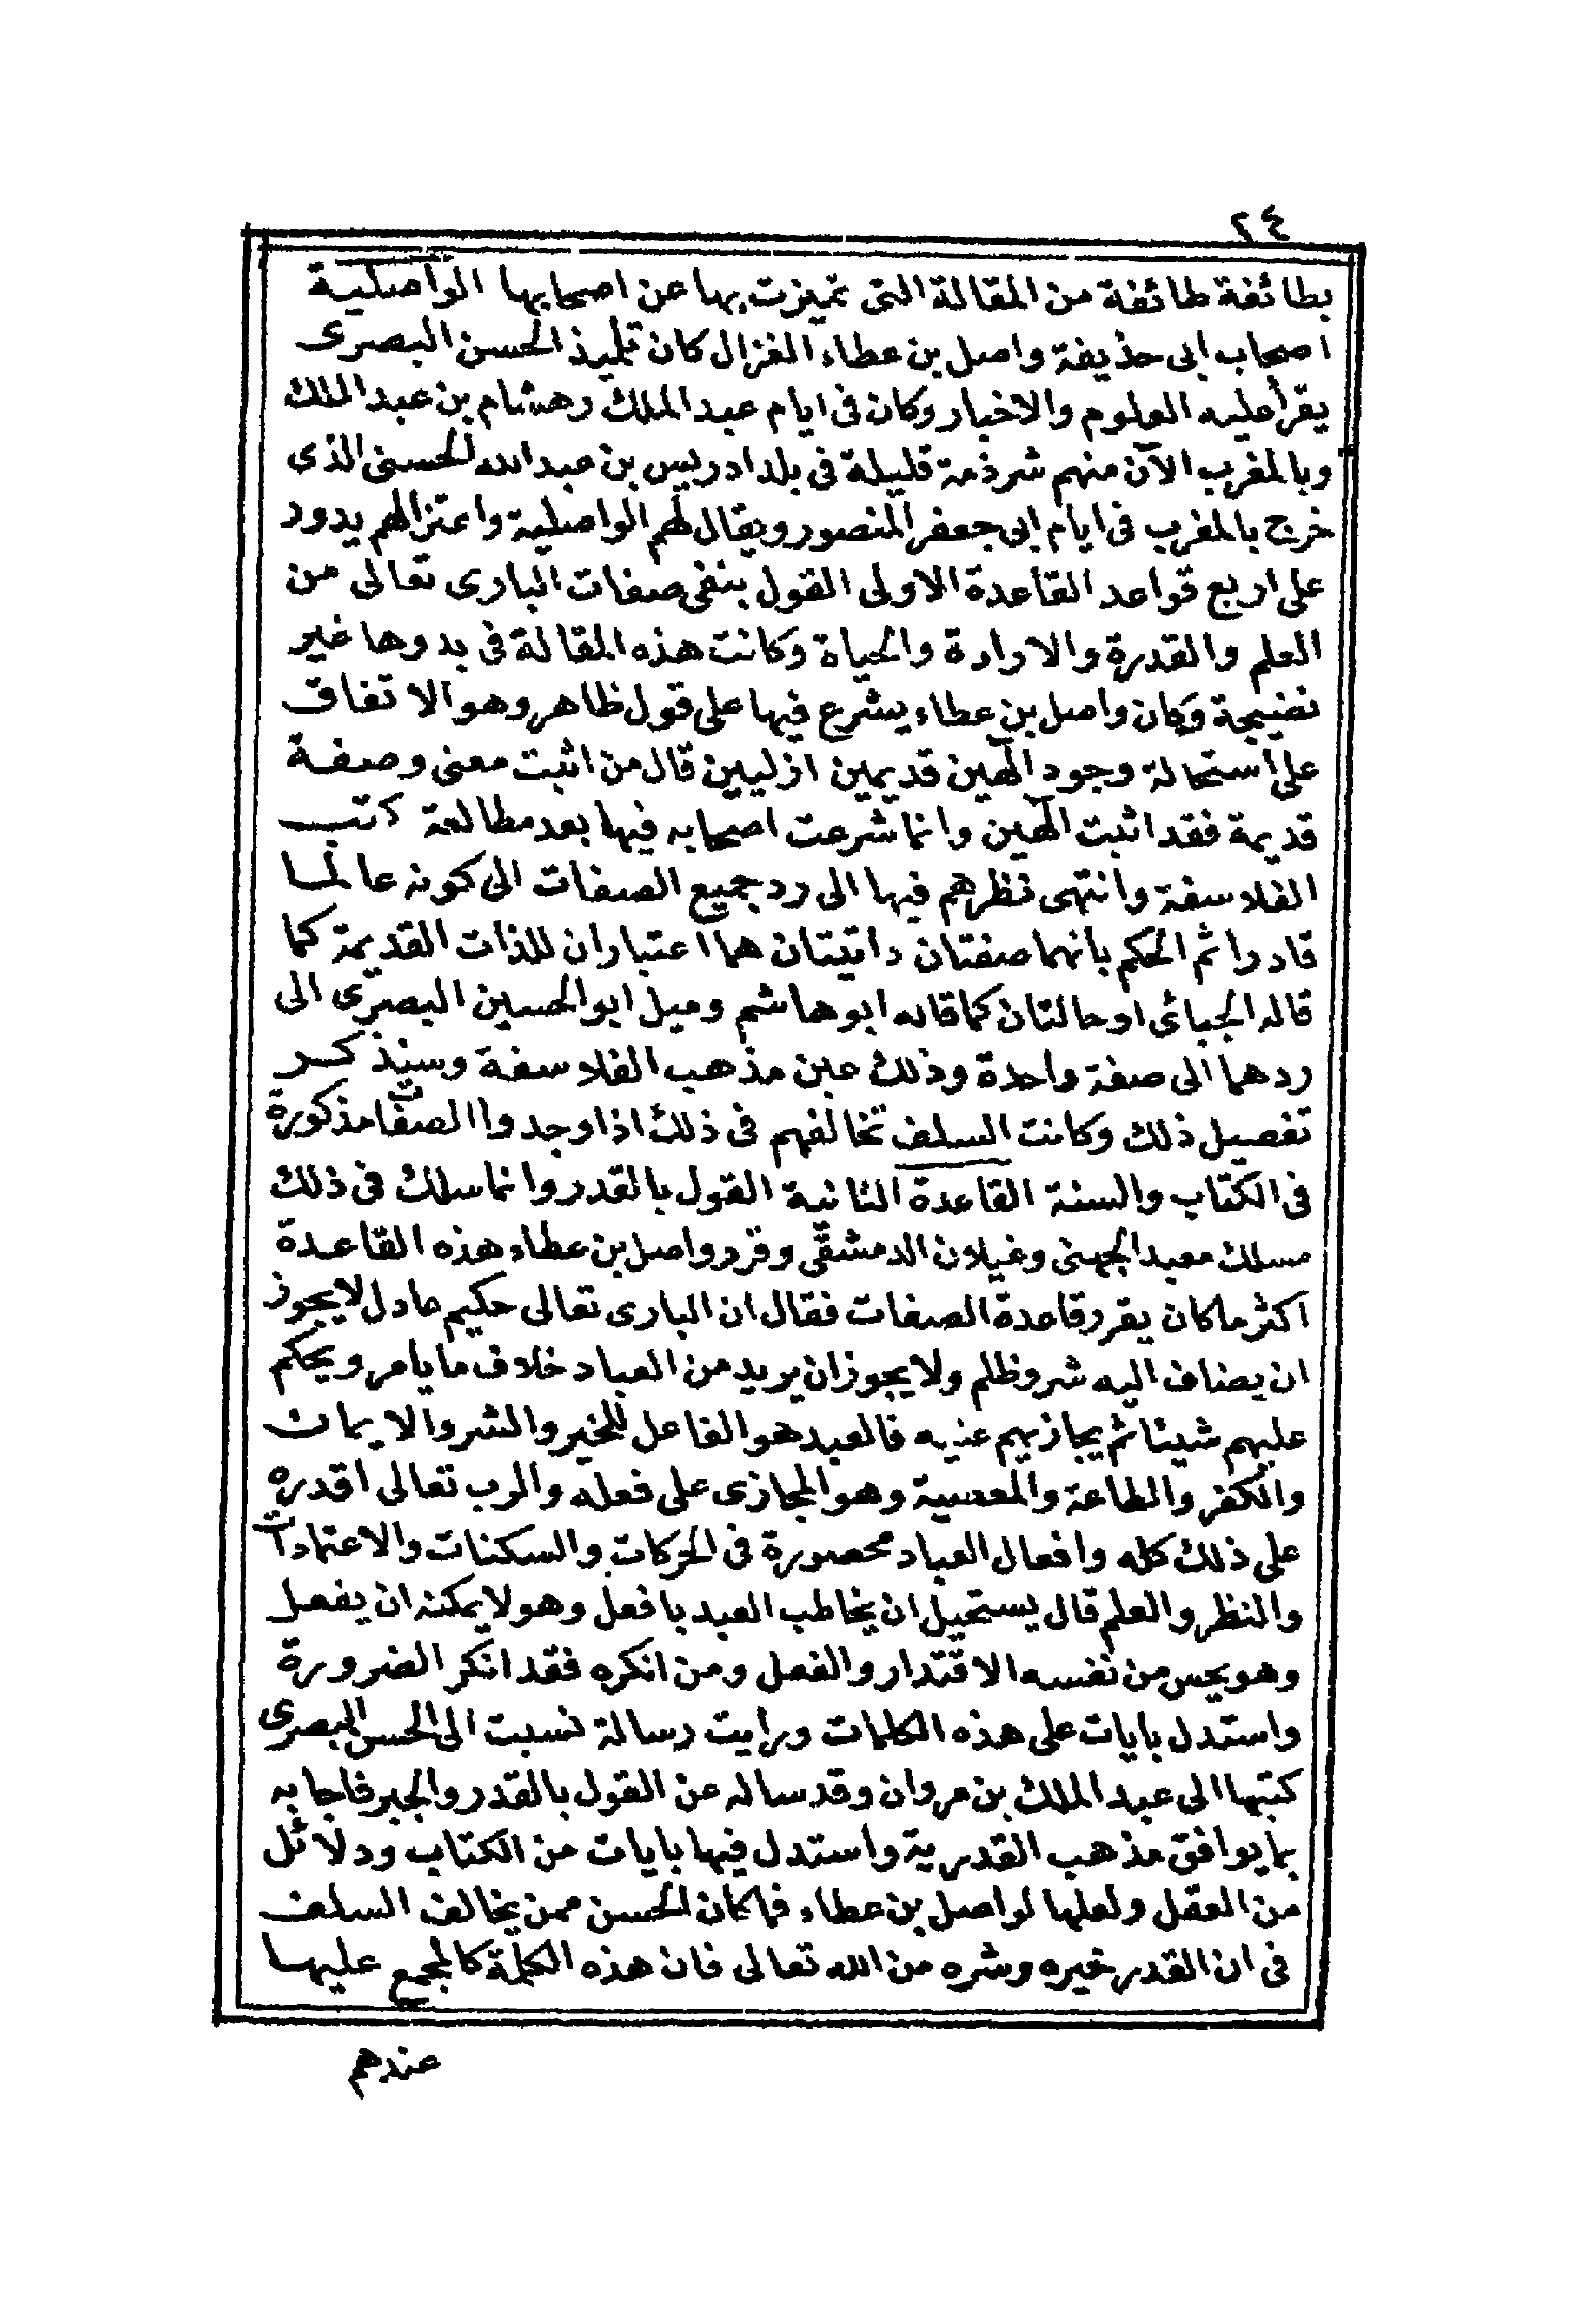 ٢٤
بطائفة طائفة من المقالة التى تميزت بها عن اصحابها الواصلية
اصحاب ابى حذيفة واصل بن عطاء الغزال كان تلميذ الحسن البصرى
يقرأ عليه العلوم والاخبار وكان فى ايام عبد الملك وهشام بن عبد الملك
وبالمغرب الآن منهم شرذمة قليلة فى بلد ادريس بن عبد الله الحسنى الذى
خرج بالمغرب فى ايام ابى جعفر المنصور ويقال لهم الواصلية واعتزالهم يدود
على اربع قواعد القاعدة الاولى القول بنفى صفات البارى تعالى من
العلم والقدرة والارادة والحياة وكانت هذه المقالة فى بدوها غير
نضيجة وكان واصل بن عطاء يشرع فيها على قول ظاهر وهو الاتفاق
على استحالة وجود الهين قديمين ازليين قال من اثبت معنى وصفة
قديمة فقد اثبت الهين وانما شرعت اصحابه فيها بعد مطالعة كتب
الفلاسفة وانتهى نظرهم فيها الى رد جميع الصفات الى كونه عالما
قادرا ثم الحكم بانهما صفتان ذاتيتان هما اعتباران للذات القديمة كما
قاله الجبائى او حالتان كما قاله ابو هاشم وميل ابو الحسين البصرى الى
ردهما الى صفة واحدة وذلك عين مذهب الفلاسفة وسنذكر
تفصيل ذلك وكانت السلف تخالفهم فى ذلك اذا وجدوا الصفات مذكورة
فى الكتاب والسنة القاعدة الثانية القول بالقدر وانما سلك فى ذلك
مسلك معبد الجهنى وغيلان الدمشقى وقرر واصل بن عطاء هذه القاعدة
اكثر ما كان يقرر قاعدة الصفات فقال ان البارى تعالى حكيم عادل لا يجوز
ان يضاف اليه شر وظلم ولا يجوز ان يريد من العباد خلاف ما يامر ويحكم
عليهم شيئا ثم يجازيهم عليه فالعبد هو الفاعل للخير والشر والايمان
والكفر والطاعة والمعصية وهو المجازى على فعله والرب تعالى اقدره
على ذلك كله وافعال العباد محصورة فى الحركات والسكنات والاعتمادات
والنظر والعلم قال يستحيل ان يخاطب العبد بافعل وهو لا يمكنه ان يفعل
وهو يحس من نفسه الاقتدار والفعل ومن انكره فقد انكر الضرورة
واستدل بايات على هذه الكلمات ورايت رسالة نسبت الى الحسن البصرى
كتبها الى عبد الملك بن مروان وقد ساله عن القول بالقدر والجبر فاجابه
بما يوافق مذهب القدرية واستدل فيها بايات من الكتاب ودلائل
من العقل ولعلها لواصل بن عطاء فما كان الحسن ممن يخالف السلف
فى ان القدر خيره وشره من الله تعالى فان هذه الكلمة كالمجمع عليها
عندهم